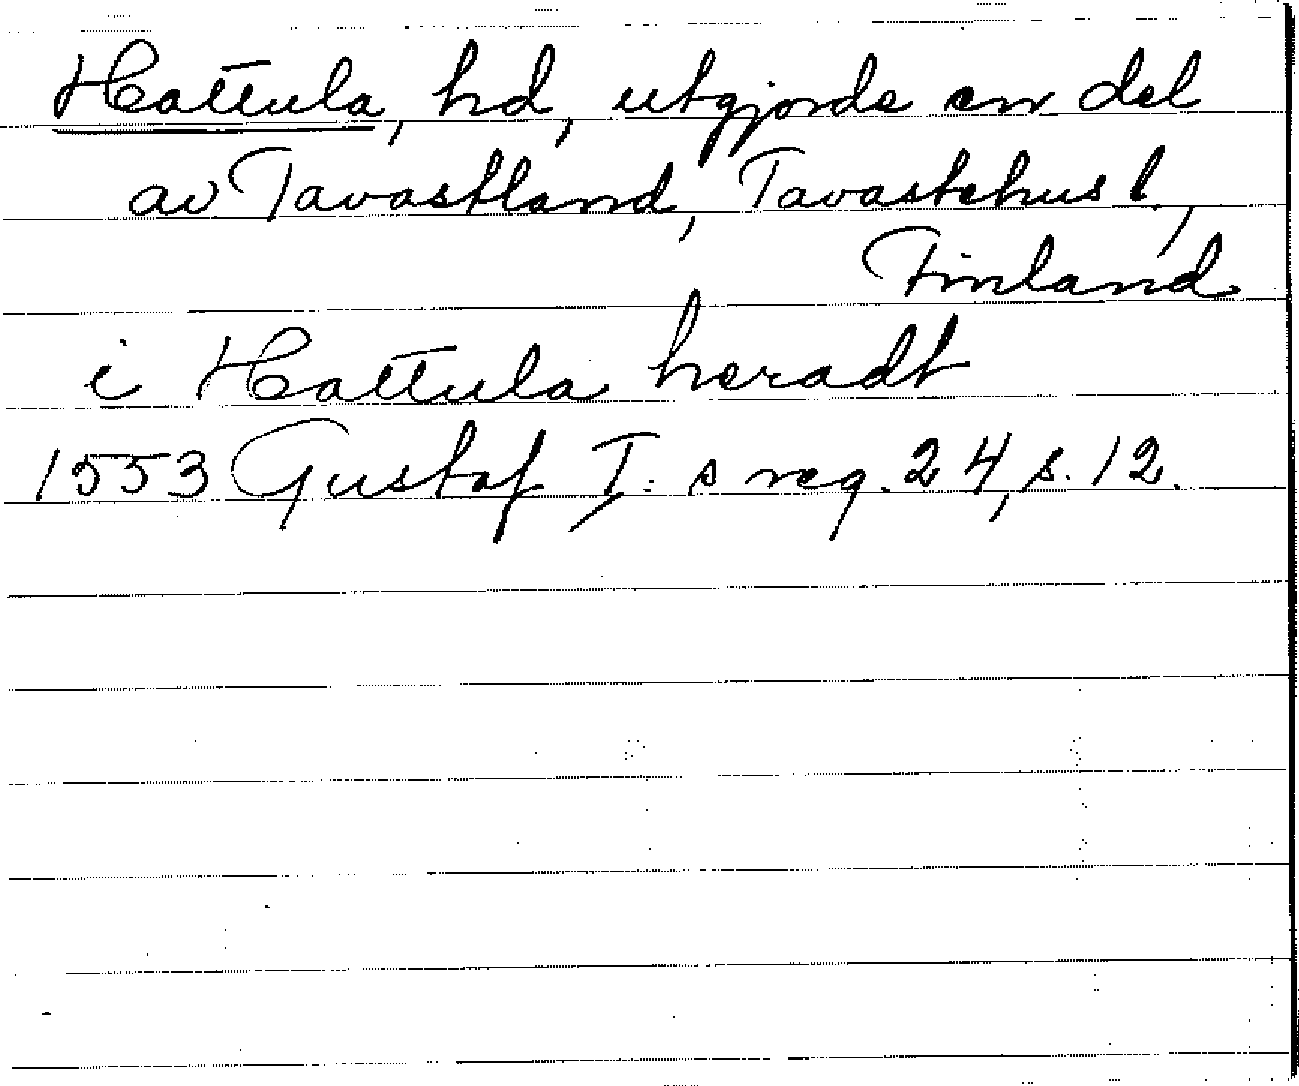 Hattula, hd, utgjorde en del
av Tavastland, Tavastehus l.,
Finland
i Hattula heradt
1553 Gustaf I:s reg. 24, s. 12.